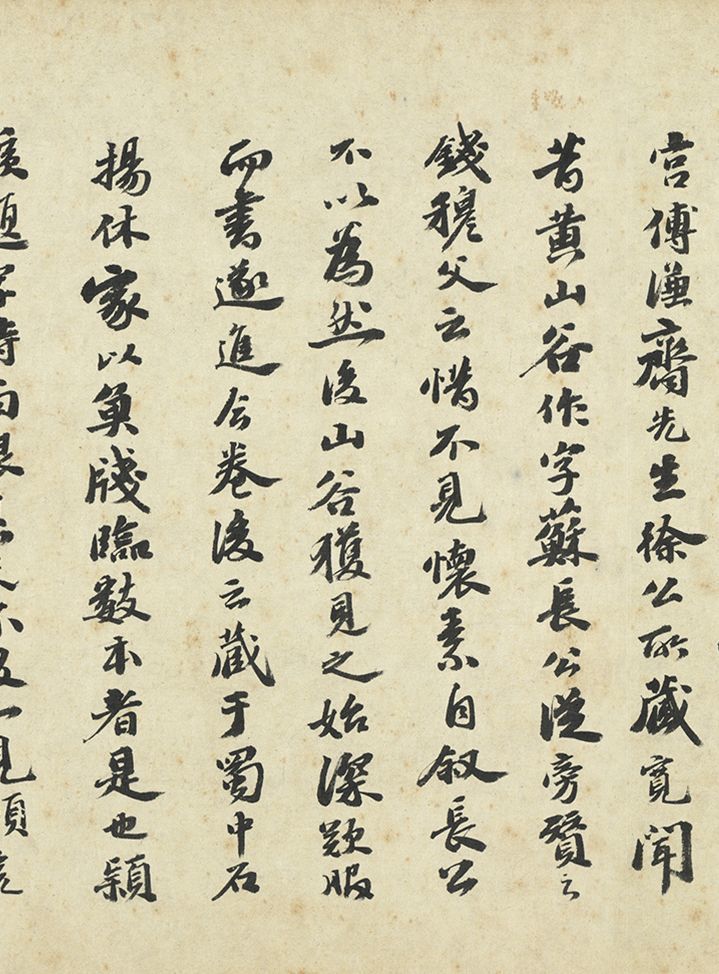 宫傅謙齋先生徐公所藏寬聞
昔黄山谷作字蘇長公從旁贊之
錢穆父云惜不見懷素自叙長公
不以為然後山谷獲見之始深歎服
而書遂進今卷後云藏于蜀中石
揚休家以魚牋臨數本者是也穎
後題字時
一見穎